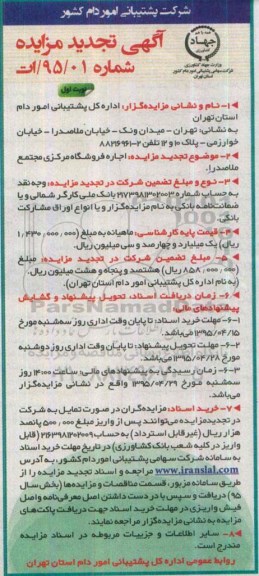 شرکت پشتیبانی امور دام کشور
آگهی تجدید مزایده
شماره ۹۵/۰۱/ات
جهاد
وزارت جهاد کشاورزی
شرکت سهامی پشتیبانی امور دام کشور
نوبت اول
۱- نام و نشانی مزایده‌گزار: اداره کل پشتیبانی امور دام
استان تهران
به نشانی: تهران - میدان ونک - خیابان ملاصدرا - خیابان
خوارزمی - پلاک ۱۰ و ۱۲ تلفن ۲-۸۸۲۱۶۹۶۱
۲- موضوع تجدید مزایده: اجاره فروشگاه مرکزی مجتمع
ملاصدرا.
۳- نوع و مبلغ تضمین شرکت در تجدید مزایده: وجه نقد
به حساب شماره ۲۱۷۳۹۸۱۳۰۲۰۰۳ بانک ملی کارگر شمالی و یا
ضمانت‌نامه بانکی به نام مزایده‌گزار و یا انواع اوراق مشارکت
بانکی.
۴- قیمت پایه کارشناسی: ماهیانه به مبلغ (۱,۴۳۰,۰۰۰,۰۰۰
ریال) یک میلیارد و چهارصد و سی میلیون ریال.
۵- مبلغ تضمین شرکت در تجدید مزایده: مبلغ
(۸۵۸,۰۰۰,۰۰۰ ریال) هشتصد و پنجاه و هشت میلیون ریال.
(به نام اداره کل پشتیبانی امور دام استان تهران).
۶- زمان دریافت اسناد، تحویل پیشنهاد و گشایش
پیشنهادهای مالی:
۱-۶- مهلت خرید اسناد: تا پایان وقت اداری روز سه‌شنبه مورخ
۱۳۹۵/۰۴/۱۵ می‌باشد.
۲-۶- مهلت تحویل پیشنهاد: تا پایان وقت اداری روز دوشنبه
مورخ ۱۳۹۵/۰۴/۲۸ می‌باشد.
۳-۶- زمان رسیدگی به پیشنهادهای مالی: ساعت ۱۴:۰۰ روز
سه‌شنبه مورخ ۱۳۹۵/۰۴/۲۹ واقع در نشانی مزایده‌گزار
می‌باشد.
۷- خرید اسناد: مزایده‌گران در صورت تمایل به شرکت
در تجدید مزایده می‌توانند پس از واریز مبلغ ۵۰۰,۰۰۰ پانصد
هزار ریال (غیرقابل استرداد) به حساب ۲۱۷۳۹۸۱۲۰۲۰۰۹ (قابل
واریز در کلیه شعب بانک کشاورزی) در تاریخ مهلت خرید اسناد
به سامانه شرکت سهامی پشتیبانی امور دام کشور، به آدرس
www.iranslal.com مراجعه و اسناد تجدید مزایده را از
طریق سامانه مزبور، قسمت مناقصات و مزایده‌ها (بخش سال
۹۵) دریافت و سپس با در دست داشتن اصل معرفی‌نامه و اصل
فیش واریزی در مهلت خرید اسناد جهت دریافت پاکت‌های
مزایده به نشانی مزایده‌گزار مراجعه نمایند.
۸- سایر اطلاعات و جزییات مربوطه در اسناد مزایده
مندرج است.
روابط عمومی اداره کل پشتیبانی امور دام استان تهران